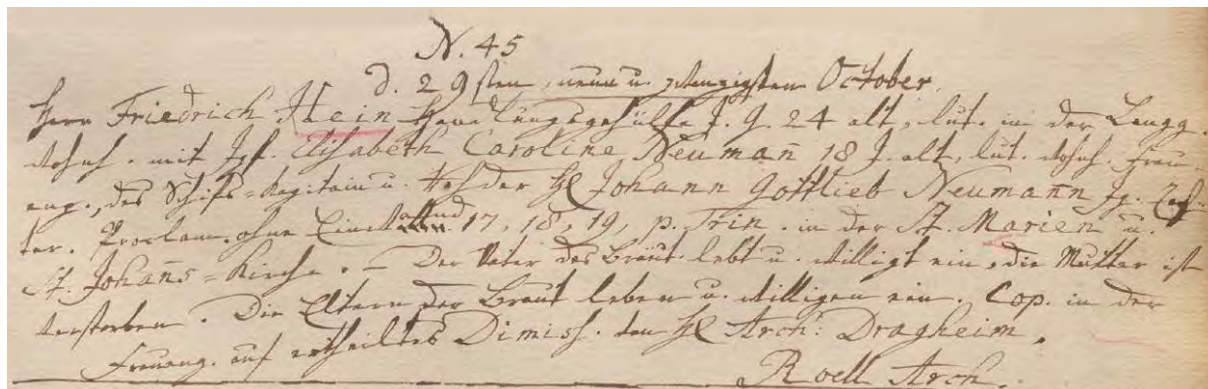 N. 45
d. 29sten, neun u. zwanzigsten October.
Herr Friedrich Stein Handlungsgehülfe J. G. 24 alt, lut. in der Langg.
wohnh. mit Jgf. Elisabeth Caroline Neuman̄ 18 J. alt, lut. wohnh. Frau
eng., des Schifs-Kapitain u. Rhder H Johann Gottlieb Neuman̄ Jg. Toch
ter. Proclam. ohne Einwand 17, 18, 19, p. Trin. in der St. Marien u.
St. Johan̄s-Kirche. – Der Vater des Bräut. lebt u. willigt ein, die Mutter ist
verstorben. Die Eltern der Braut leben u. willigen ein. Cop. in der
Fraueng. auf ertheiltes Dimiss. den H Arch: Dragheim.
Roell Arch.